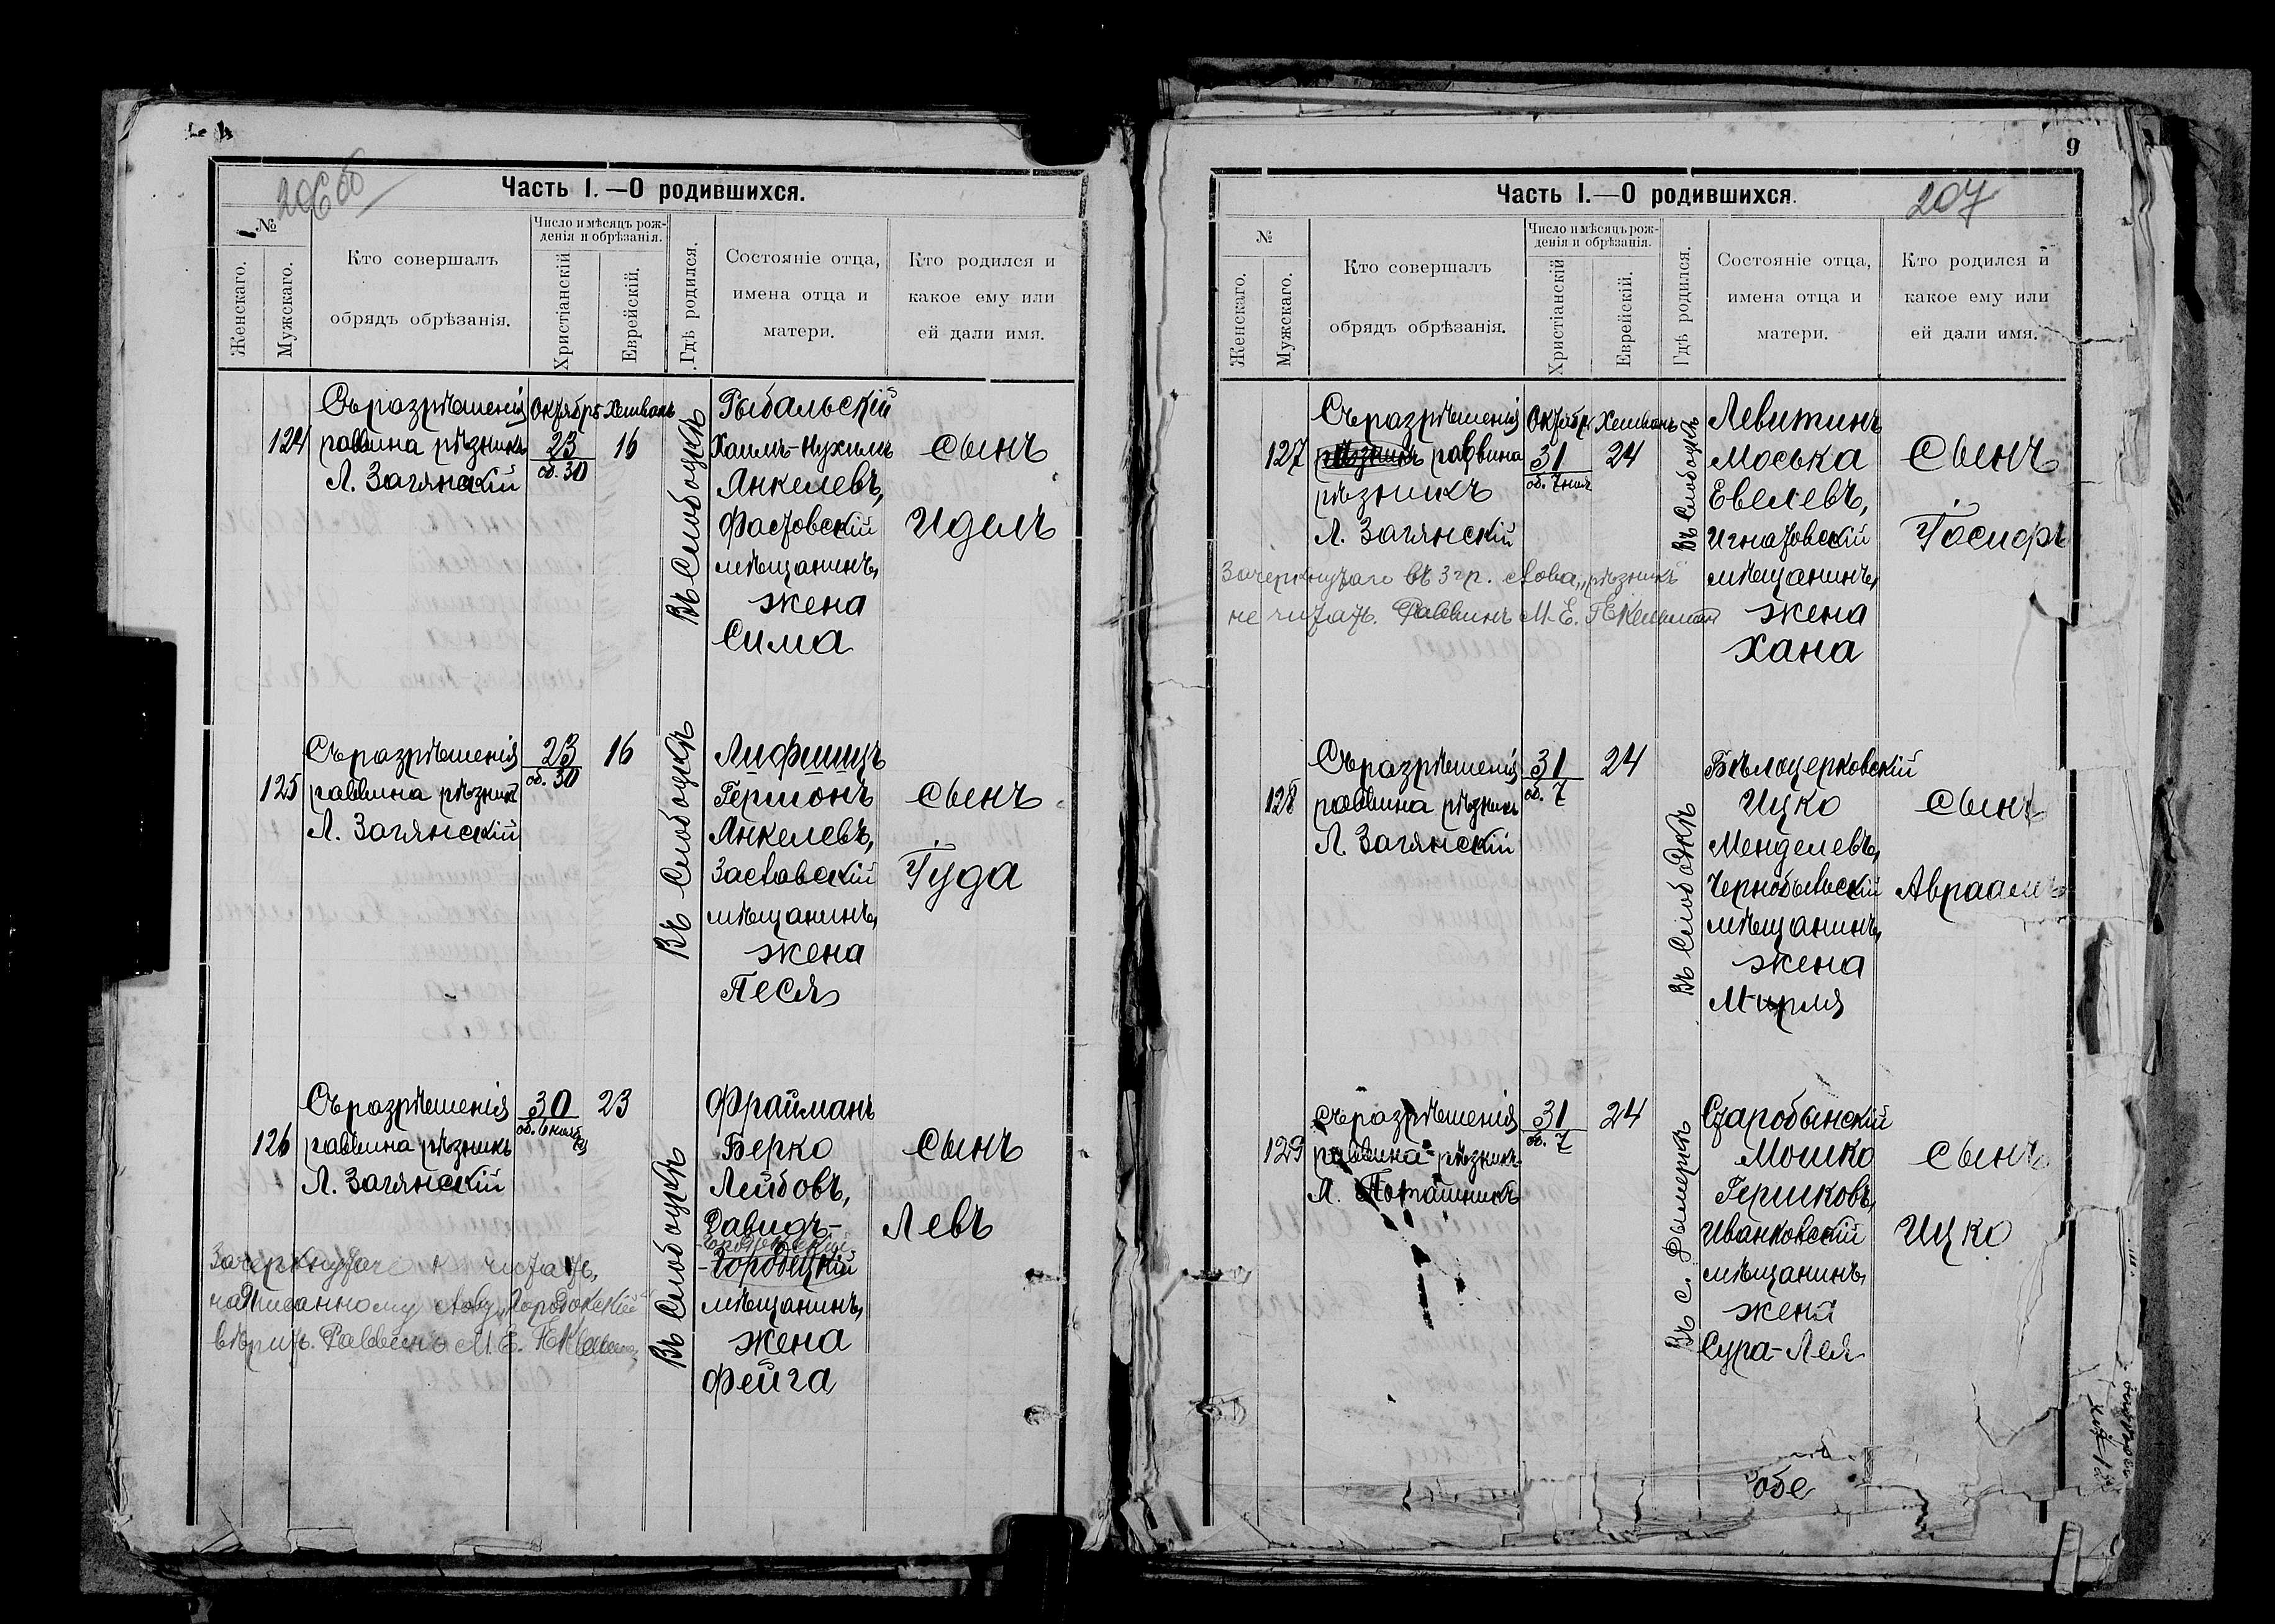 206 об
Часть I.—О родившихся.
№
Женскаго.
Мужскаго.
Кто совершалъ
обрядъ обрѣзанія.
Число и мѣсяцъ рож-
денія и обрѣзанія.
Христіанскій
Еврейскій.
Гдѣ родился.
Состояніе отца,
имена отца и
матери.
Кто родился и
какое ему или
ей дали имя.
124
Съ разрѣшенія
раввина рѣзникъ
Л. Загянскій
Октябрь
23
об. 30
Хешванъ
16
Въ Слободкѣ
Рыбальскій
Хаимъ-Нухимъ
Янкелевъ,
Фастовскій
мѣщанинъ,
жена
Сима
сынъ
Идель
125
Съ разрѣшенія
раввина рѣзникъ
Л. Загянскій
23
об. 30
16
Въ Слободкѣ
Лифшицъ
Гершонъ
Янкелевъ,
Заславскій
мѣщанинъ,
жена
Песя
сынъ
Іуда
126
Съ разрѣшенія
раввина рѣзникъ
Л. Загянскій
30
об. 6 нояб
23
Въ Слободкѣ
Фрайманъ
Берко
Лейбовъ,
Давидъ-
Городокскій
-Городецкій
мѣщанинъ,
жена
Фейга
сынъ
Левъ
Зачеркнутаго не читать,
надписанному слову „Городокскій“
вѣрить. Раввинъ М. Е.
9
Часть I.—О родившихся.
207
№
Женскаго.
Мужскаго.
Кто совершалъ
обрядъ обрѣзанія.
Число и мѣсяцъ рож-
денія и обрѣзанія.
Христіанскій
Еврейскій.
Гдѣ родился.
Состояніе отца,
имена отца и
матери.
Кто родился и
какое ему или
ей дали имя.
127
Съ разрѣшенія
рѣзникъ раввина
рѣзникъ
Л. Загянскій
Октябрь
31
об. 7 нояб
Хешванъ
24
Въ Слободкѣ
Левитинъ
Моська
Евелевъ,
Игнатовскій
мѣщанинъ,
жена
Хана
сынъ
Іосифъ
Зачеркнутаго въ 3 гр. слова „рѣзникъ“
не читать. Раввинъ М. Е.
128
Съ разрѣшенія
раввина рѣзникъ
Л. Загянскій
31
об. 7
24
Въ Слободкѣ
Бѣлоцерковскій
Ицко
Менделевъ,
Чернобыльскій
мѣщанинъ,
жена
Мирля
сынъ
Авраамъ
129
Съ разрѣшенія
раввина рѣзникъ
Л. Поташникъ
31
об. 7
24
Въ с. Дымеркѣ
Старобынскій
Мошко
Гершковъ,
Иванковскій
мѣщанинъ,
жена
Сура-Лея
сынъ
Ицко